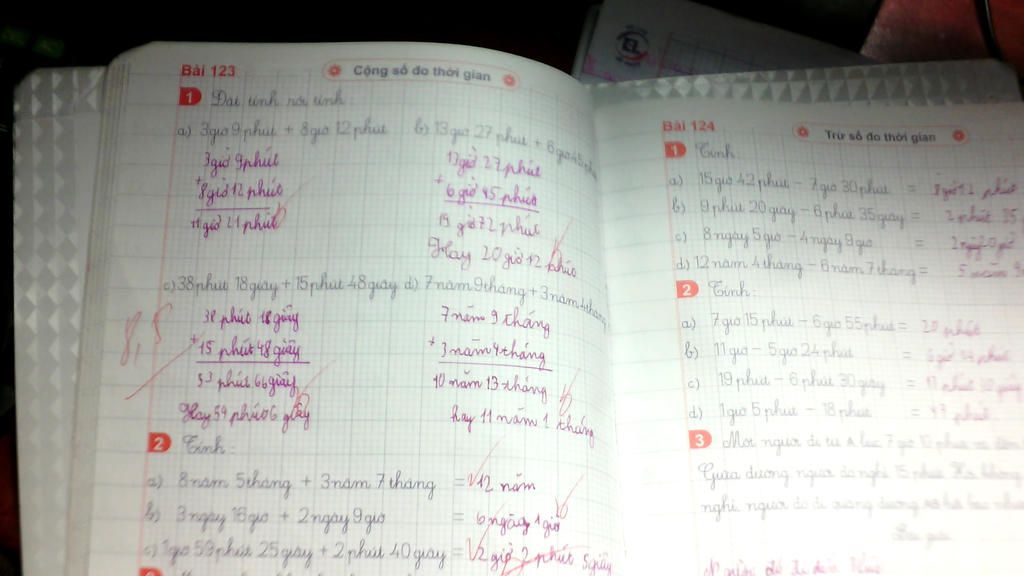 Bài 123 Cộng số đo thời gian
1 Đặt tính rồi tính:
a) 3giờ 9phút + 8giờ 12phút b) 13giờ 27phút + 6giờ45phút
3giờ 9phút
+8giờ 12 phút
11 giờ 21 phút
13giờ 27 phút
+ 6 giờ 45 phút
19 giờ 72 phút
Hay 20 giờ 12 phút
c) 38phút 18giây + 15phút 48giây d) 7năm 9tháng + 3năm 4tháng
38 phút 18 giây
+15 phút 48 giây
53 phút 66 giây
Hay 54 phút 6 giây
7 năm 9 tháng
+ 3 năm 4 tháng
10 năm 13 tháng
hay 11 năm 1 tháng
8,5
2 Tính:
a) 8năm 5tháng + 3năm 7tháng = 12 năm
b) 3ngày 16giờ + 2ngày 9giờ = 6 ngày 1 giờ
c) 1giờ 59phút 25giây + 2phút 40giây = 2 giờ 2 phút 5giây
Bài 124 Trừ số đo thời gian
1 Tính:
a) 15giờ 42phút - 7giờ 30phút = 8giờ12 phút
b) 9phút 20giây - 6phút 35giây = 2 phút
c) 8ngày 5giờ - 4ngày 9giờ = 20giờ
d) 12năm 4tháng - 6năm 7tháng = 5 năm 9
2 Tính:
a) 7giờ 15phút - 6giờ 55phút = 20 phút
b) 11giờ - 5giờ 24phút =
c) 19phút - 6phút 30giây =
d) 1giờ 5phút - 18phút = 47 phút
3 Một người đi từ A lúc 7giờ 10 phút và đến
Giữa đường người đó nghỉ 15 phút. Hỏi không
nghỉ, người đó đi quãng đường
Bài giải